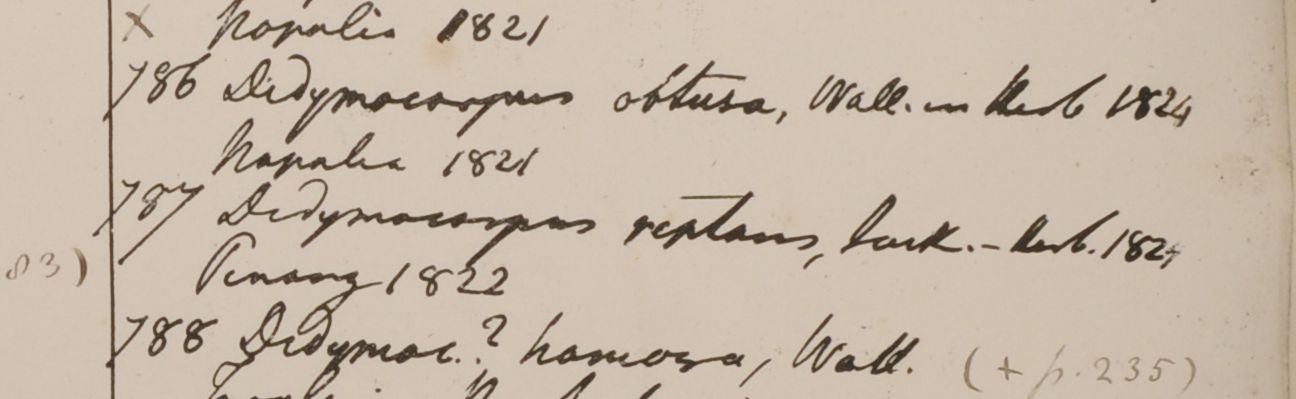 x Napalia 1821
786 Didymocarpus obtusa, Wall. in Herb 1824
Napalia 1821
787 Didymocarpus reptans, Jack. - Herb. 1824
83)
Penang 1822
788 Didymoc.? hamosa, Wall. (+ p. 235)